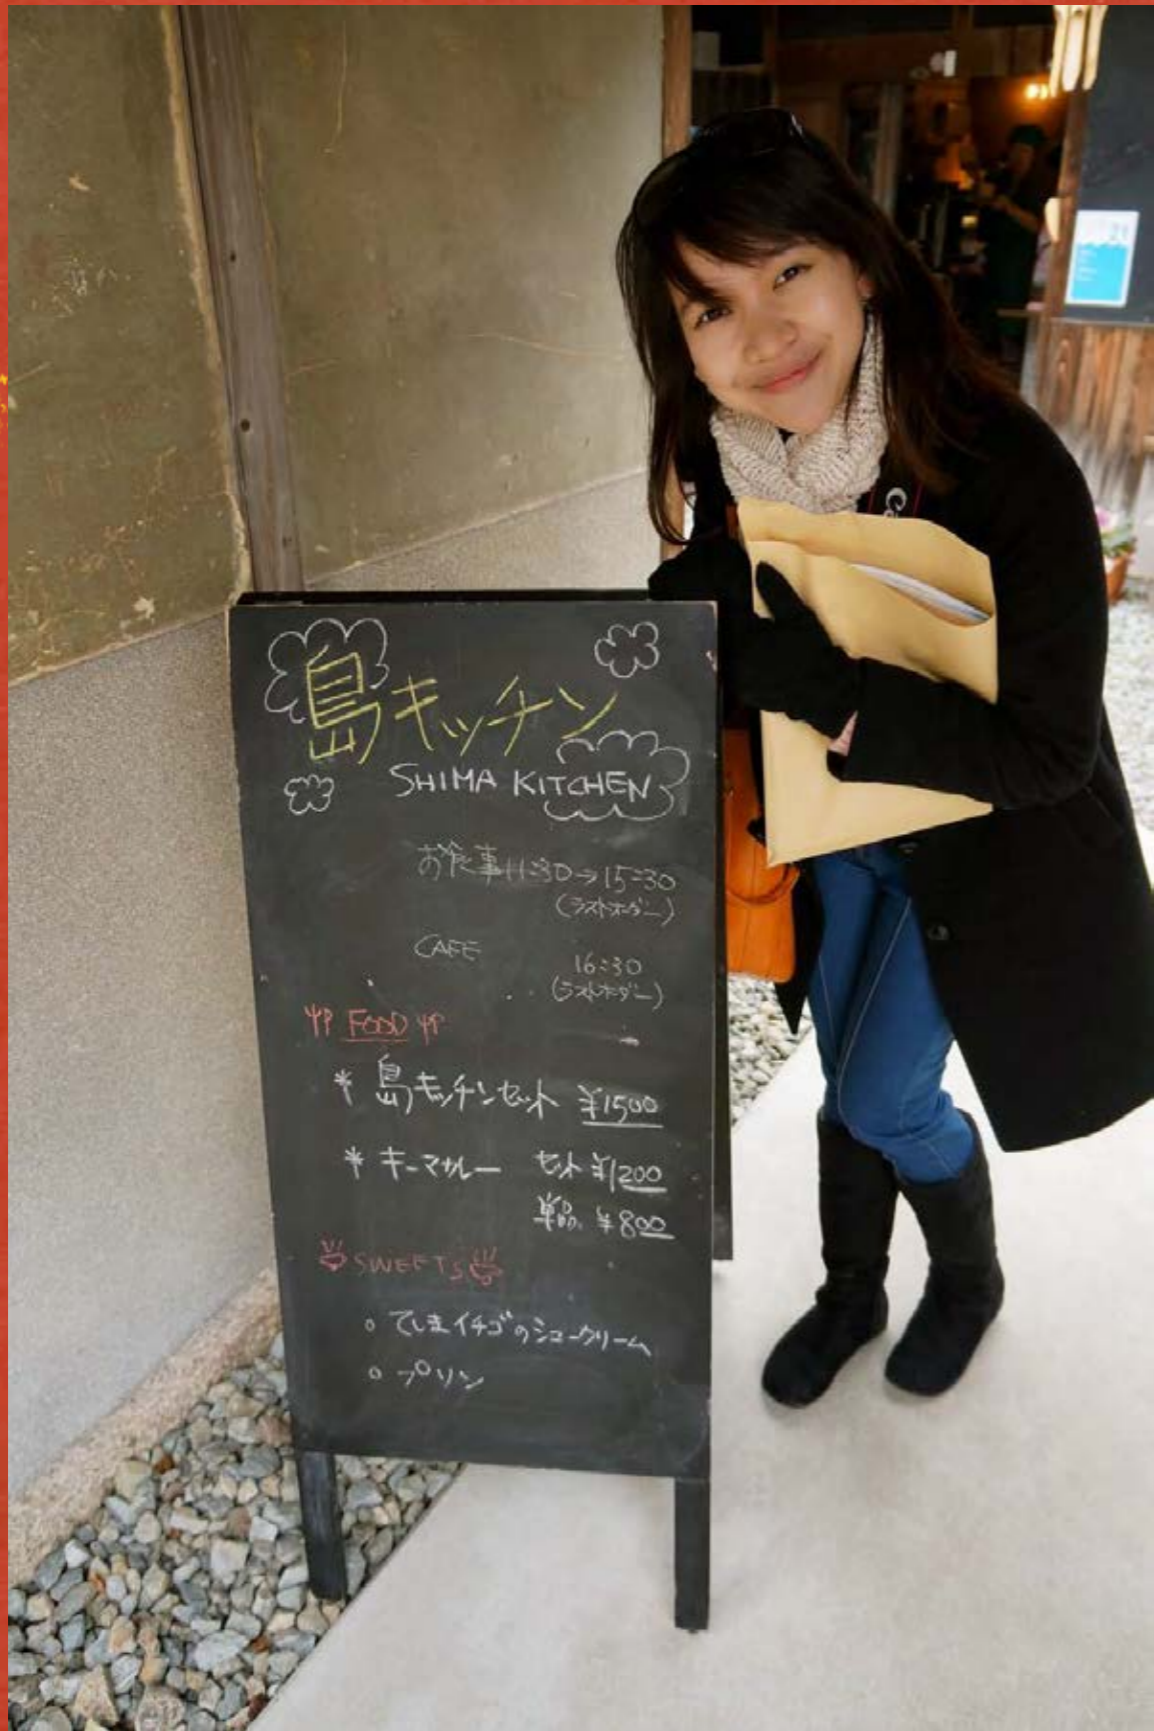 島キッチン
SHIMA KITCHEN
お食事 11:30→15:30
(ラストオーダー)
CAFE 16:30
(ラストオーダー)
FOOD
* 島キッチンセット ¥1500
* キーマカレー セット ¥1200
単品 ¥800
SWEETS
○ てしまイチゴのシュークリーム
○ プリン
21